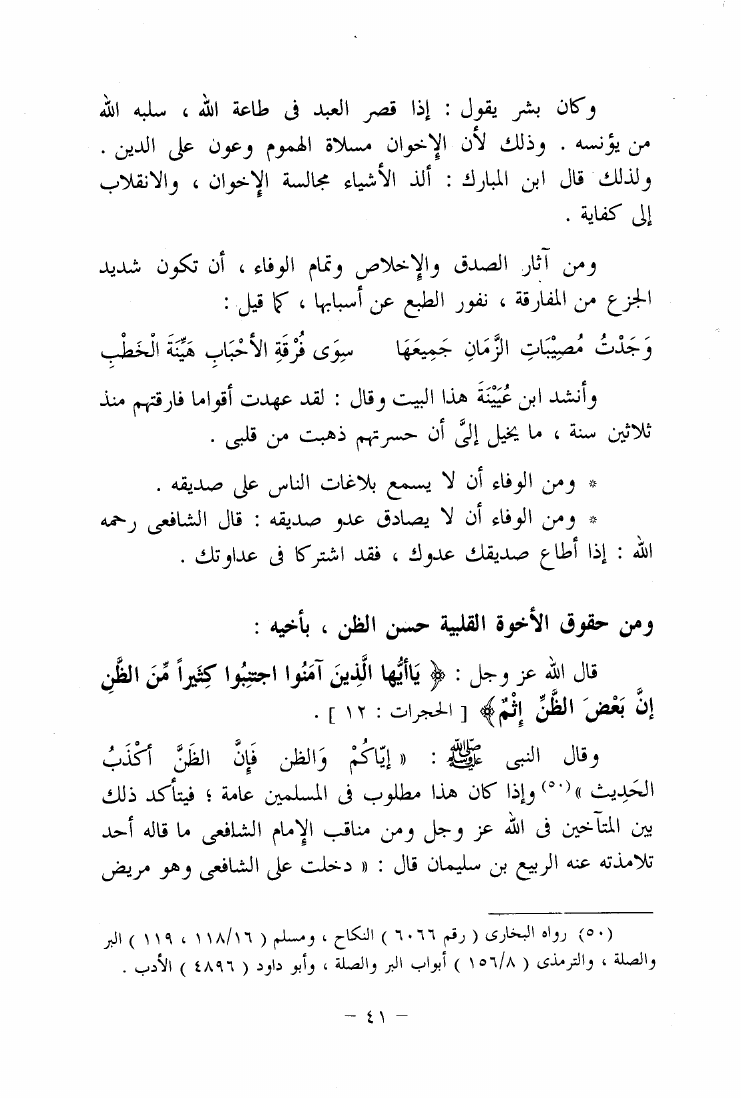 وكان بشر يقول : إذا قصر العبد فى طاعة الله ، سلبه الله
من يؤنسه . وذلك لأن الإخوان مسلاة الهموم وعون على الدين .
ولذلك قال ابن المبارك : ألذ الأشياء مجالسة الإخوان ، والانقلاب
إلى كفاية .
ومن آثار الصدق والإخلاص وتمام الوفاء ، أن تكون شديد
الجزع من المفارقة ، نفور الطبع عن أسبابها ، كما قيل :
وَجَدْتُ مُصِيْبَاتِ الزَّمَانِ جَمِيعَهَا سِوَى فُرْقَةِ الأَحْبَابِ هَيِّنَةَ الْخَطْبِ
وأنشد ابن عُيَيْنَةَ هذا البيت وقال : لقد عهدت أقواما فارقتهم منذ
ثلاثين سنة ، ما يخيل إلىَّ أن حسرتهم ذهبت من قلبى .
* ومن الوفاء أن لا يسمع بلاغات الناس على صديقه .
* ومن الوفاء أن لا يصادق عدو صديقه : قال الشافعى رحمه
الله : إذا أطاع صديقك عدوك ، فقد اشتركا فى عداوتك .
ومن حقوق الأخوة القلبية حسن الظن ، بأخيه :
قال الله عز وجل : ﴿ يَاأَيُّها الَّذِينَ آمَنُوا اجتنِبُوا كَثَيراً مِّنَ الظَّنِ
إنَّ بَعْضَ الظَّنِّ إِثْمٌ﴾ [ الحجرات : ١٢ ] .
وقال النبى ﷺ : « إيّاكُمْ وَالظن فَإِنَّ الظَنَّ أكْذَبُ
الحَدِيث »(٥٠) وإذا كان هذا مطلوب فى المسلمين عامة ؛ فيتأكد ذلك
بين المتآخين فى الله عز وجل ومن مناقب الإمام الشافعى ما قاله أحد
تلامذته عنه الربيع بن سليمان قال : « دخلت على الشافعى وهو مريض
(٥٠) رواه البخارى ( رقم ٦٠٦٦ ) النكاح ، ومسلم ( ١١٨/١٦ ، ١١٩ ) البر
والصلة ، والترمذى ( ١٥٦/٨ ) أبواب البر والصلة ، وأبو داود ( ٤٨٩٦ ) الأدب .
– ٤١ –